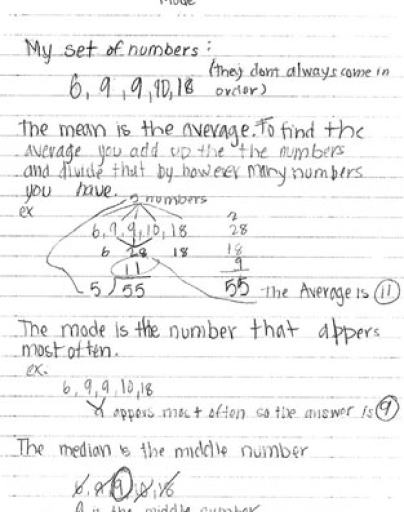 Mode
My set of numbers:
(they dont always come in
6, 9, 9, 10, 18 order)
The mean is the average. To find the
average you add up the the numbers
and divide that by however many numbers
you have.
5 numbers
ex
6, 9, 9, 10, 18
2
28
6 28 18
18
11
9
5)55
55 - The Average is 11
The mode is the number that appers
most often.
ex.
6, 9, 9, 10, 18
appers most often so the answer is 9
The median is the middle number
6, 9, 9, 10, 18
9 is the middle number